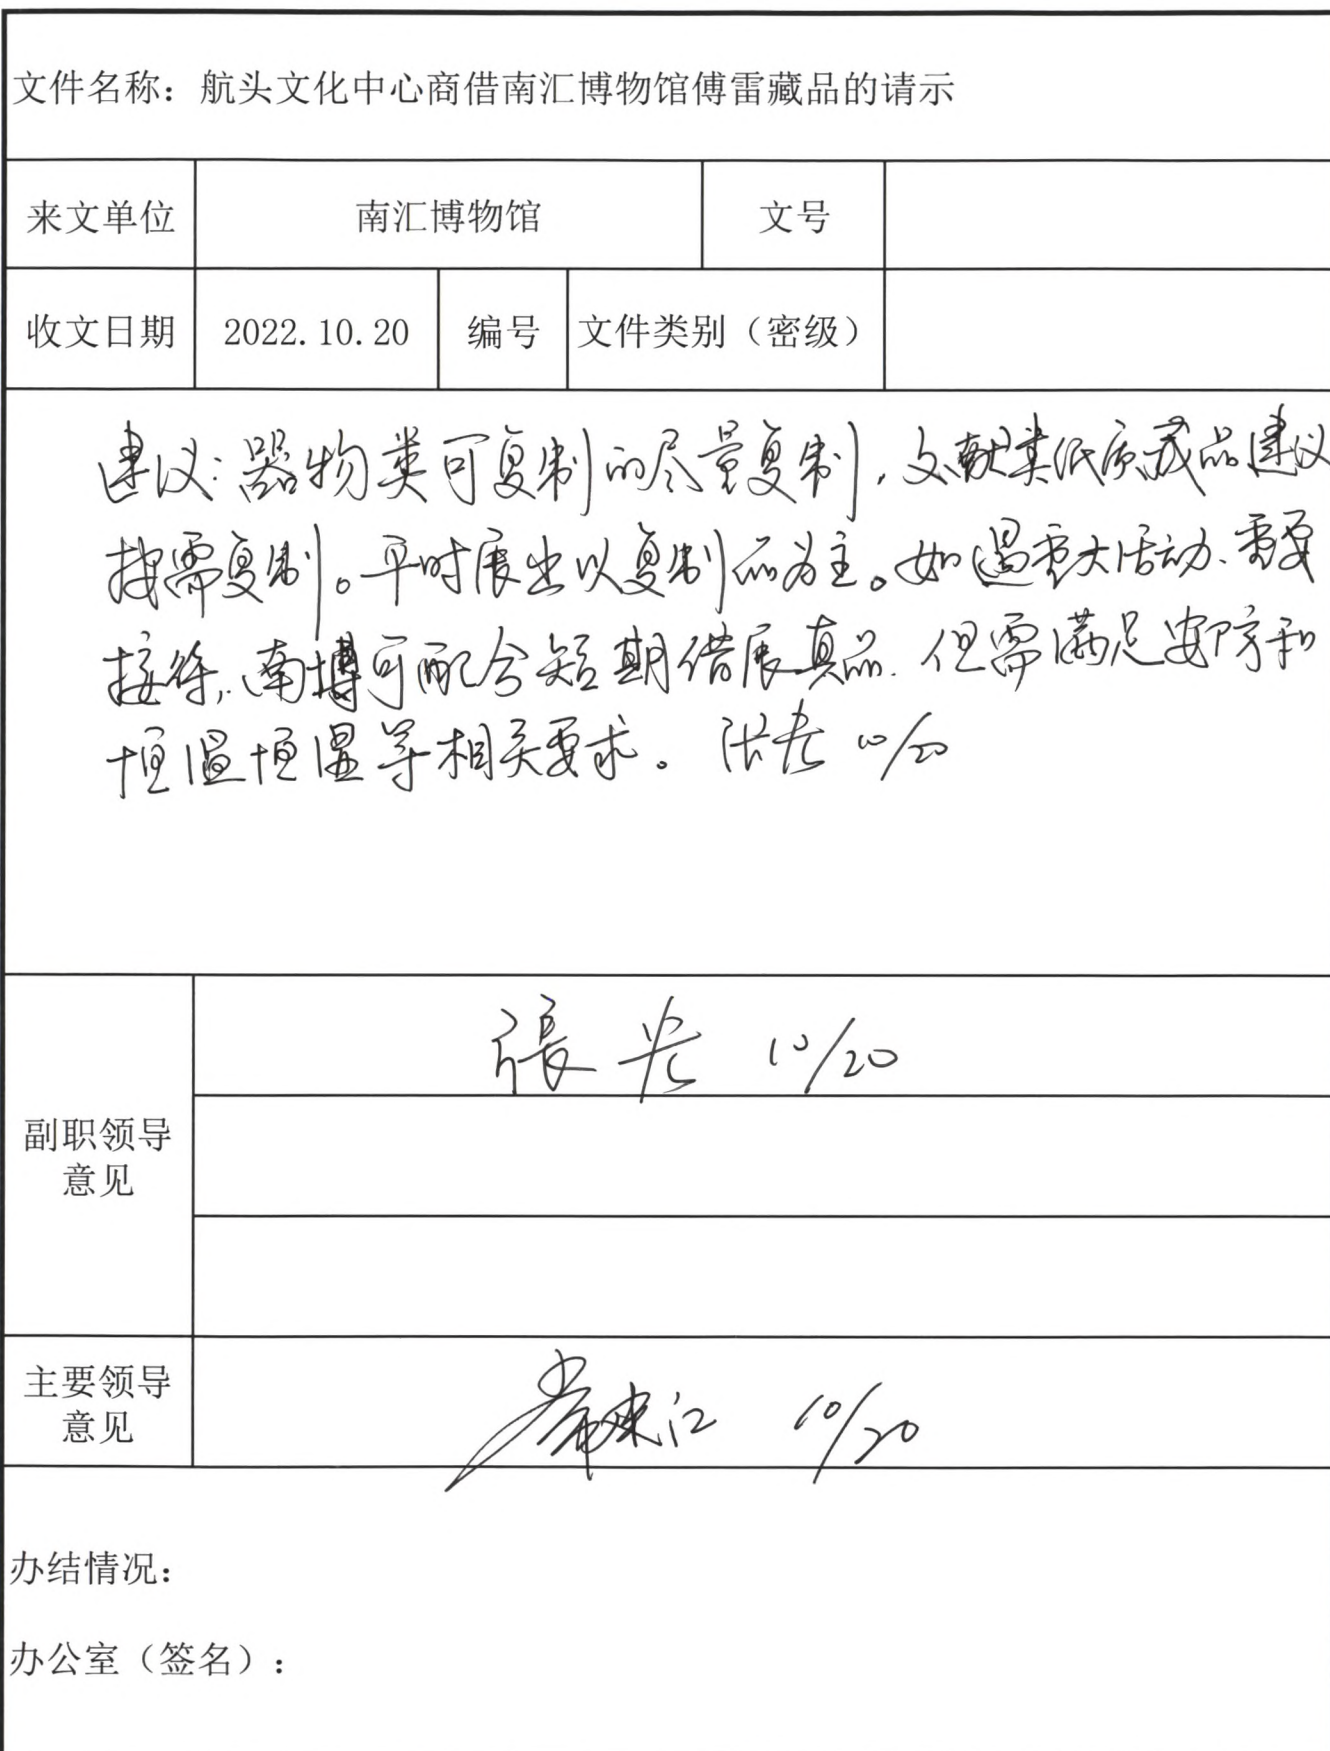 文件名称：航头文化中心商借南汇博物馆傅雷藏品的请示
来文单位 南汇博物馆 文号
收文日期 2022.10.20 编号 文件类别（密级）
建议：器物类可复制的尽量复制，文献类纸质藏品建议
按需复制。平时展出以复制品为主。如遇重大活动、重要
接待，南博可配合短期借展真品，但需满足安防和
恒温恒湿等相关要求。 10/20
張 10/20
副职领导
意见
主要领导
意见
10/20
办结情况：
办公室（签名）：